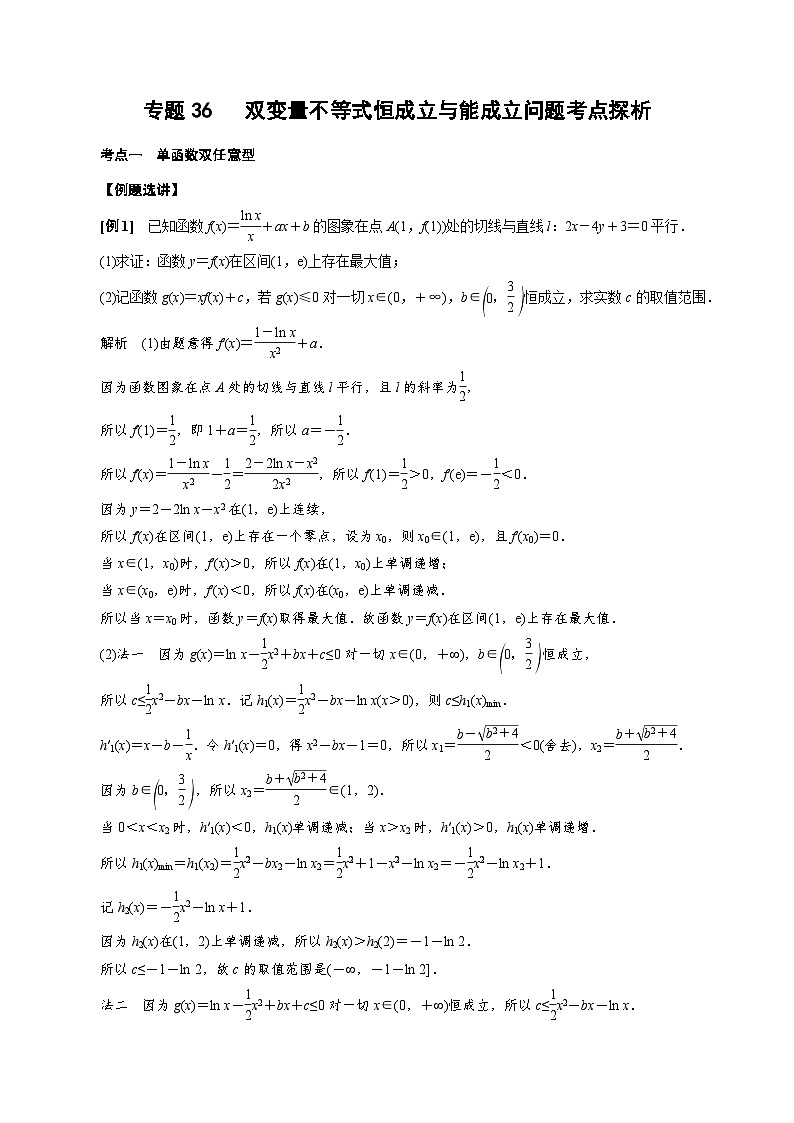 专题 36　双变量不等式恒成立与能成立问题考点探析
考点一　单函数双任意型
【例题选讲】
[例1]　已知函数 f(x)＝\frac{ln x}{x}＋ax＋b 的图象在点 A(1，f(1))处的切线与直线 l：2x－4y＋3＝0 平行．
(1)求证：函数 y＝f(x)在区间(1，e)上存在最大值；
(2)记函数 g(x)＝xf(x)＋c，若 g(x)≤0 对一切 x∈(0，＋∞)，b∈(0，\frac{3}{2})恒成立，求实数 c 的取值范围．
解析　(1)由题意得 f′(x)＝\frac{1－ln x}{x²}＋a．
因为函数图象在点 A 处的切线与直线 l 平行，且 l 的斜率为\frac{1}{2}，
所以 f′(1)＝\frac{1}{2}，即 1＋a＝\frac{1}{2}，所以 a＝－\frac{1}{2}．
所以 f′(x)＝\frac{1－ln x}{x²}－\frac{1}{2}＝\frac{2－2ln x－x²}{2x²}，所以 f′(1)＝\frac{1}{2}>0，f′(e)＝－\frac{1}{2}<0．
因为 y＝2－2ln x－x² 在(1，e)上连续，
所以 f′(x)在区间(1，e)上存在一个零点，设为 x₀，则 x₀∈(1，e)，且 f′(x₀)＝0．
当 x∈(1，x₀)时，f′(x)＞0，所以 f(x)在(1，x₀)上单调递增；
当 x∈(x₀，e)时，f′(x)＜0，所以 f(x)在(x₀，e)上单调递减．
所以当 x＝x₀ 时，函数 y＝f(x)取得最大值．故函数 y＝f(x)在区间(1，e)上存在最大值．
(2)法一　因为 g(x)＝ln x－\frac{1}{2}x²＋bx＋c≤0 对一切 x∈(0，＋∞)，b∈(0，\frac{3}{2})恒成立，
所以 c≤\frac{1}{2}x²－bx－ln x．记 h₁(x)＝\frac{1}{2}x²－bx－ln x(x＞0)，则 c≤h₁(x)min．
h′₁(x)＝x－b－\frac{1}{x}．令 h′₁(x)＝0，得 x²－bx－1＝0，所以 x₁＝\frac{b－\sqrt{b²＋4}}{2}＜0(舍去)，x₂＝\frac{b＋\sqrt{b²＋4}}{2}．
因为 b∈(0，\frac{3}{2})，所以 x₂＝\frac{b＋\sqrt{b²＋4}}{2}∈(1，2)．
当 0＜x＜x₂ 时，h′₁(x)＜0，h₁(x)单调递减；当 x＞x₂ 时，h′₁(x)＞0，h₁(x)单调递增．
所以 h₁(x)min＝h₁(x₂)＝\frac{1}{2}x²－bx₂－ln x₂＝\frac{1}{2}x²＋1－x²－ln x₂＝－\frac{1}{2}x²－ln x₂＋1．
记 h₂(x)＝－\frac{1}{2}x²－ln x＋1．
因为 h₂(x)在(1，2)上单调递减，所以 h₂(x)＞h₂(2)＝－1－ln 2．
所以 c≤－1－ln 2，故 c 的取值范围是(－∞，－1－ln 2]．
法二　因为 g(x)＝ln x－\frac{1}{2}x²＋bx＋c≤0 对一切 x∈(0，＋∞)恒成立，所以 c≤\frac{1}{2}x²－bx－ln x．